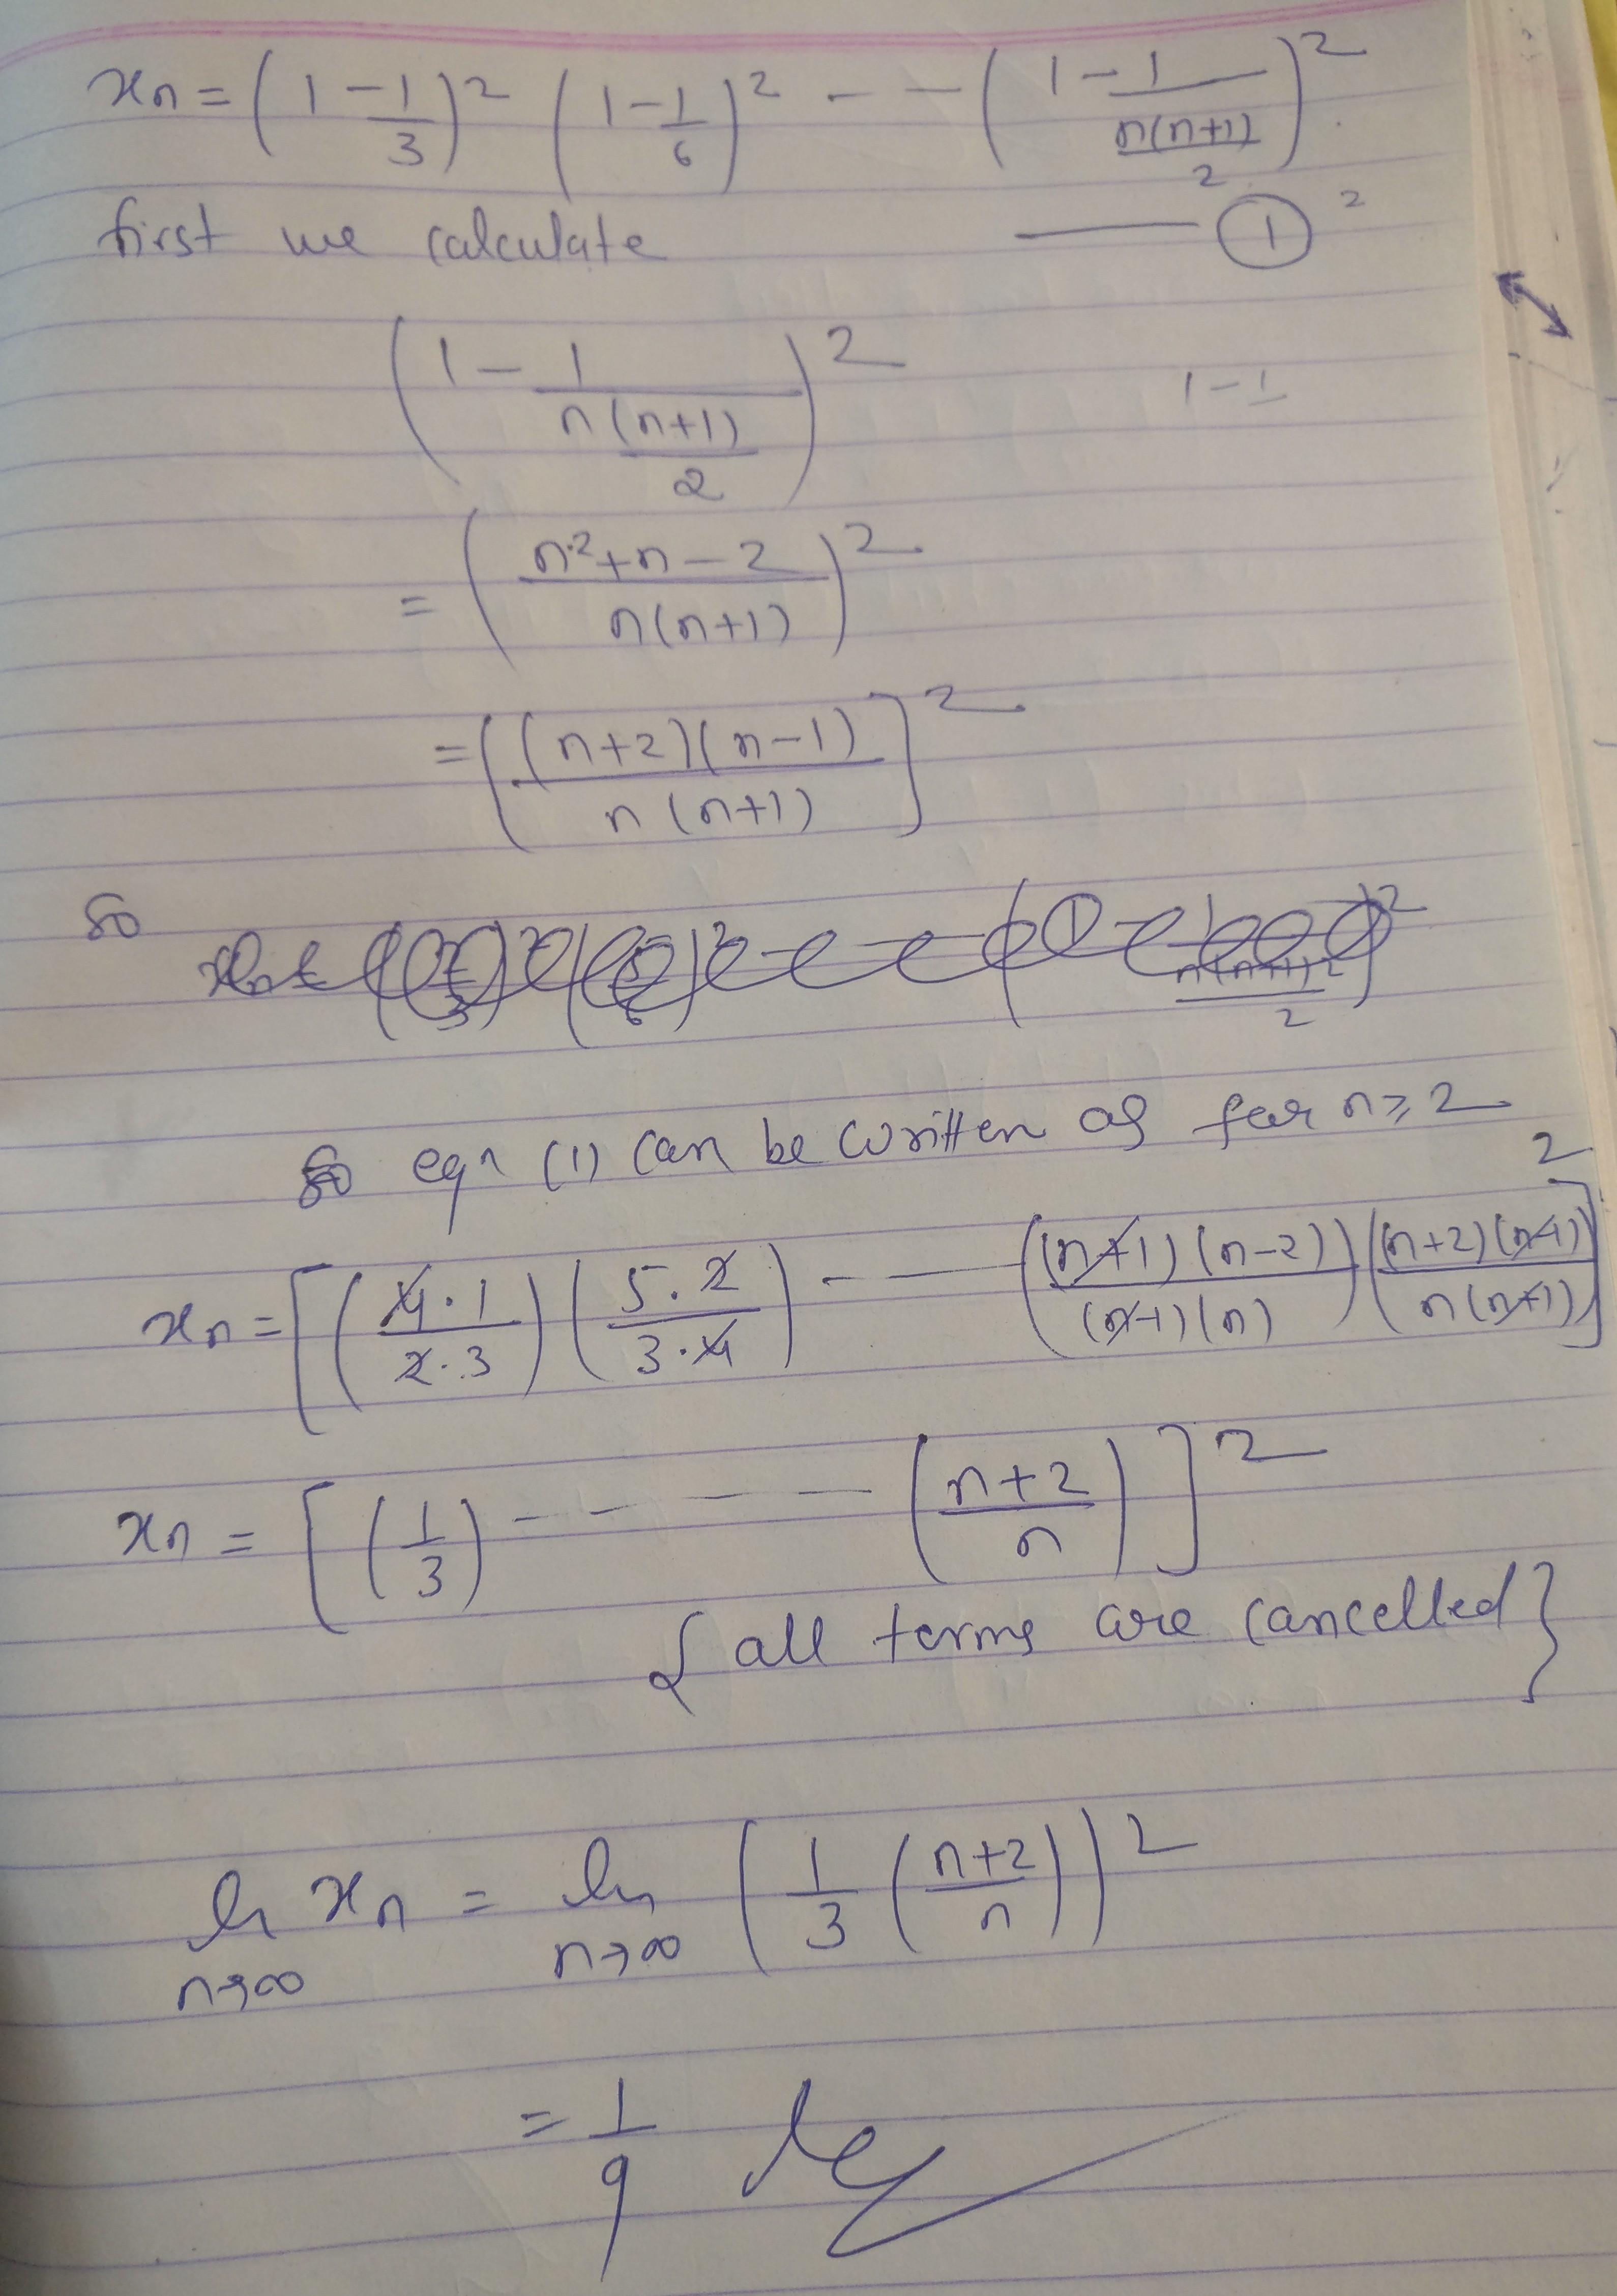 xn = (1 - 1/3)² (1 - 1/6)² - - - (1 - 1/(n(n+1)/2))²
first we calculate —— ① ²
(1 - 1/(n(n+1)/2))²
1 - 1
= ((n²+n-2)/(n(n+1)))²
= [((n+2)(n-1))/(n(n+1))]²
So
So eqn (1) can be written as for n≥2
xn = [((4·1)/(2·3)) ((5·2)/(3·4)) - - - (((n+1)(n-2))/((n-1)(n))) (((n+2)(n-1))/(n(n+1)))]²
xn = [(1/3) - - - - - ((n+2)/n)]²
{all terms are cancelled}
lim n→∞ xn = lim n→∞ (1/3 ((n+2)/n))²
= 1/9